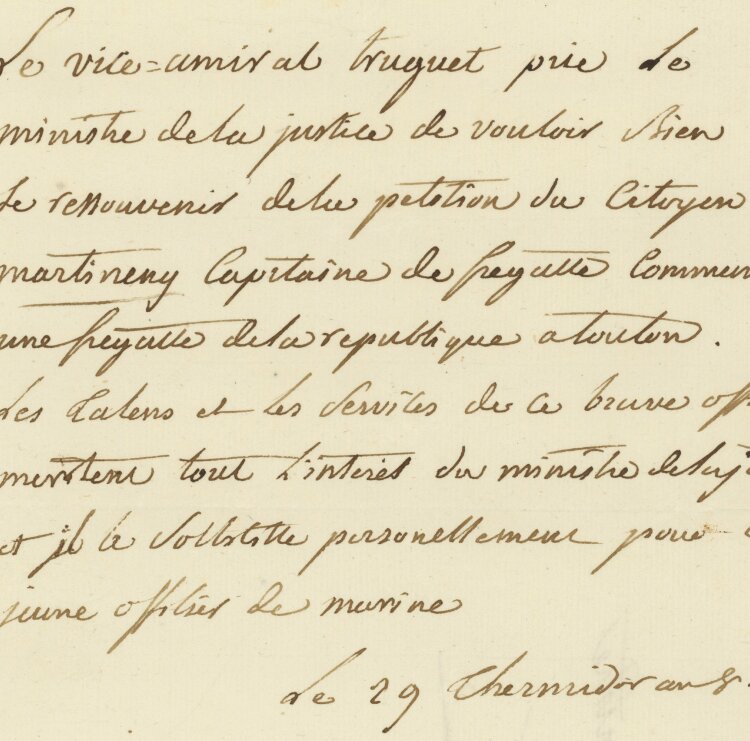 Le vice=amiral truguet prie Le
ministre dela justice de vouloir Bien
Se ressouvenir dela petition du Citoyen
martineng Capitaine de fregatte Comman
une fregatte dela republique atoulon.
Les talens et les Services de ce brave off
meritent tout L'interet du ministre dela j
et il le Sollicitte personellement pour
jeune officier de marine
Le 29 thermidor an 8.